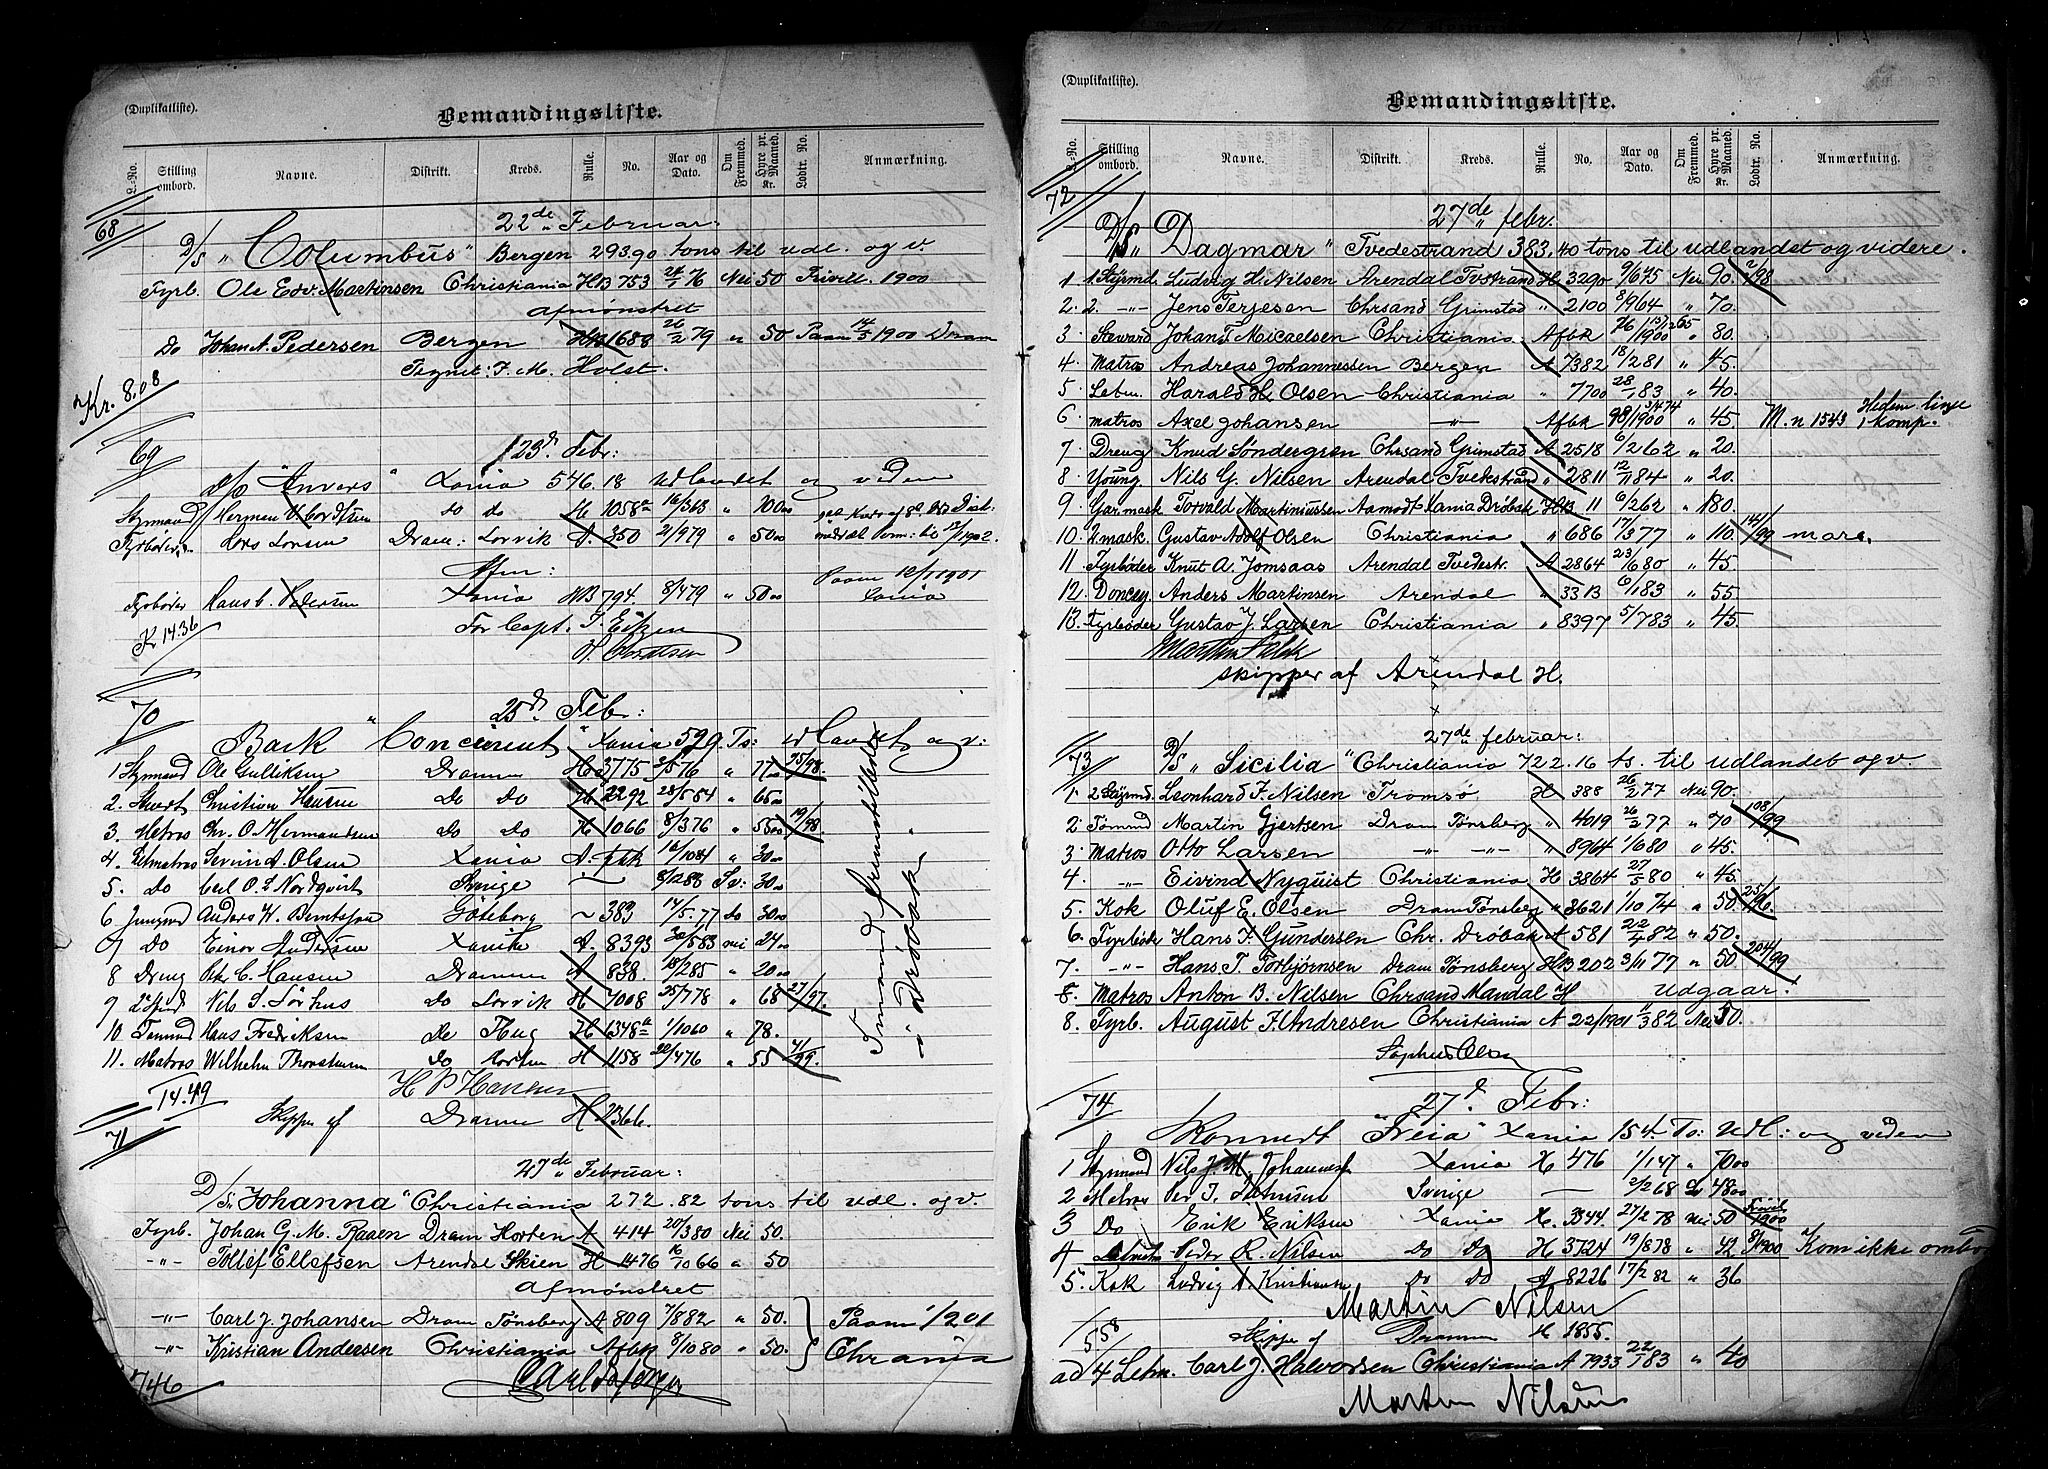 (Duplikatliste).
Bemandingsliste.
L.-No. Stilling ombord. Navne. Distrikt. Kreds. Rulle. No. Aar og Dato. Om Fremmed. Hyre pr. Maaned. Kr. Lodtr. No. Anmærkning.
68
22de Februar:
D/S "Columbus" Bergen 293.90 tons til udl. og v.
Fyrb. Ole Edv. Martinsen Christiania HB 753 24/5 76 Nei 50 Frivill. 1900
Afmønstret
Do Johan N. Pedersen Bergen HB 1688 26/2 79 " 50 Paam 14/5 1900 Dram
Tegnet: F. M. Holst.
Kr. 8.08
69
23d Febr:
d/s "Anvers" Xania 546.18 udlandet og videre
Styrmand Herman do do H 1058a 16/363 " 100.00
Fyrbøder Lars Dram: Lorvik A. 350 2/979 " 50.00
Afm:
Fyrbøder Hans Pedersen Xania HB 794. 8/479 " 50.00 Paam 12/1 1901 Xania
Kr 14.36
For Capt.
70
25d Febr:
Bark "Concurrent" Xania 529 Ts: udlandet og v:
1 Styrmand Ole Gulliksen Drammen H 3775 3/576 " 77.00 75/98.
2. Stuert Christian Hansen Do Do H. 2292 28/554 " 65.00
3. Matros Chr. O. Hermandsen do do H 1066 8/376 " 55.00 19/98.
4. Letmatros Severin A. Olsen Xania A. fbk 16/1084 " 30.00
5. Do Carl O. L. Nordqvist Sverige — 8/1283 Sv: 30.00
6 Jungmd Anders W. Berntsson Göteborg ~ 383 14/5.77 do 30.00
7 Do Einar Andersen Xania A. 8393 30/583 nei 24.00
8 Dreng C. Hansen Drammen A 838. 18/285 " 20.00
9 Nils S. Sørhus Do Lorvik H 7008 25/778 " 68 27/97.
10 Tømmd Hans Fredriksen Do H 1348a 1/1060 " 78.
11. Matros Wilhelm Thorstensen do Horten H 1158 20/476 " 55 41/99.
Tømmermand fremstilledes i Drøbak
14.49
H P Hansen
Skipper af Drammen H 2366.
71
27de Februar:
D/S "Johanna" Christiania 272.82 tons til udl. og v.
Fyrb. Johan G. M. Raaen Dram Horten A 414 20/380 Nei 50.
-"- Tollef Ellefsen Arendal Skien H 1476 16/10 66 " 50
Afmønstret
-"- Carl J. Johansen Dram Tønsberg A 809 7/882 " 50. } Paam 1/2 01
-"- Kristian Andersen Christiania Afbk 8/1080 " 50. } Chrania
7/46
(Duplikatliste).
Bemandingsliste.
L.-No. Stilling ombord. Navne. Distrikt. Kreds. Rulle. No. Aar og Dato. Om Fremmed. Hyre pr. Maaned. Kr. Lodtr. No. Anmærkning.
72
27de febr.
D/S "Dagmar" Tvedestrand 383.40 tons til udlandet og videre.
1 1. Styrmd. Ludvig H. Nilsen Arendal Tvstrand H 3290 9/675 Nei 90. 2/98
2. 2. -"- Jens Terjesen Chrsand Grimstad " 2100 8/964 " 70.
3 Steward Johan F. Micaelsen Christiania Afbk 26/1900 15/1265 " 80.
4 Matros Andreas Johannessen Bergen A 7382 18/281 " 45.
5 Letm. Harald H. Olsen Christiania " 7700 28/1 83 " 40.
6 matros Axel Johansen -"- Afbk 98/1900 3/474 " 45. M. n 1543 Hedem. linje komp.
7 Dreng Knud Søndergren Chrsand Grimstad A 2518 6/262 " 20.
8 Young Nils G. Nilsen Arendal Tvedestrand " 2811 12/184 " 20.
9 1ar mask Torvald Martiniussen Aamodt Xania Drøbak HB 11 6/262 " 180.
10. 2mask. Gustav Adolf Olsen Christiania " 686 17/377 " 110. 141/99 mare.
11 Fyrbøder Knut A. Jomsaas Arendal Tvedestr. A 2864 23/680 " 45.
12 Donkey. Anders Martinsen Arendal " 3313 6/183 " 55.
13. Fyrbøder Gustav J. Larsen Christiania " 8397 5/783 " 45.
skipper af Arendal H.
73
27de februar:
D/S "Sicilia" Christiania 722.16 ts. til udlandet og v.
1 2 Styrmd. Leonhard F. Nilsen Tromsø H 388 26/2 77 Nei 90.
2 Tømmd Martin Gjertsen Dram Tønsberg " 4019 26/2 77 " 70 108/99
3 Matros Otto Larsen -"- -"- " 8964 1/680 " 45.
4. -"- Eivind Nyquist Christiania H 3864 27/5 80 " 45.
5. Kok Oluf E. Olsen Dram Tønsberg " 3621 1/10 74 " 50. 25/96.
6. Fyrbøder Hans F. Gundersen Chr. Drøbak A 581 22/4 82 " 50.
7. -"- Hans T. Torbjörnsen Dram Tønsberg HB 202 3/11 77 " 50. 204/99
8. Matros Anton B. Nilsen Chrsand Mandal H udgaar.
8. Fyrb. August F. Andresen Christiania A 22/1901 11/382 Nei 50.
Sophus Olsen
74
27d Febr:
"Freia" Xania 154. Ts: Udl: og videre
1 Styrmand Nils J. M. Johannesen Xania H 476 1/147 " 70.00
2 Matros Per J. Sverige — 2/268 Sv 48.00
3 Do Erik Eriksen Xania H. 3344 27/2 78 nei 50 Frivil 1900
4 Letmatr Peder R. Nilsen Do Do H 3724 19/878 " 42 1900 Kom ikke ombord
5. Kok Ludvig A. Kristiansen Do Do A 8226 17/2 82 " 36
Martin Nilsen
Skipper af Drammen H 1855.
ad 4 Letm. Carl J. Halvorsen Christiania A 7933 22/1 83 " 40
Martin Nilsen